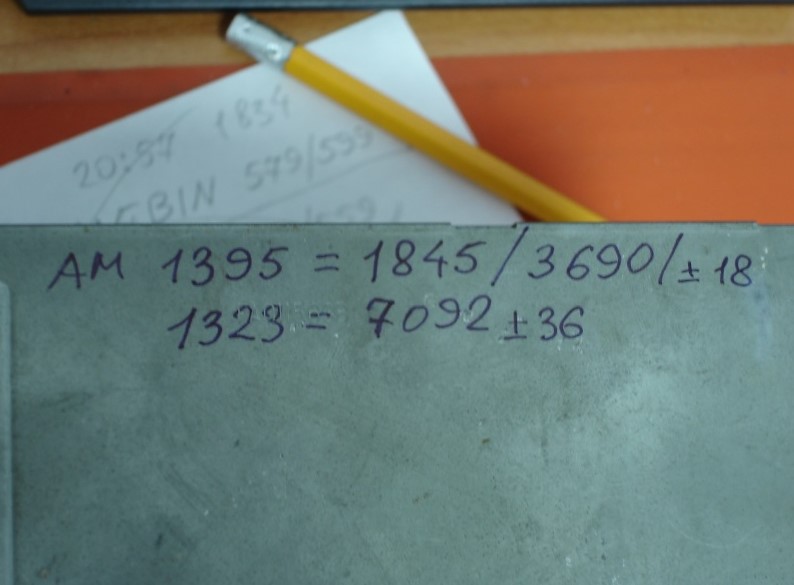 20:57 1834
579/599
AM 1395 = 1845/3690/±18
1323 = 7092 ±36